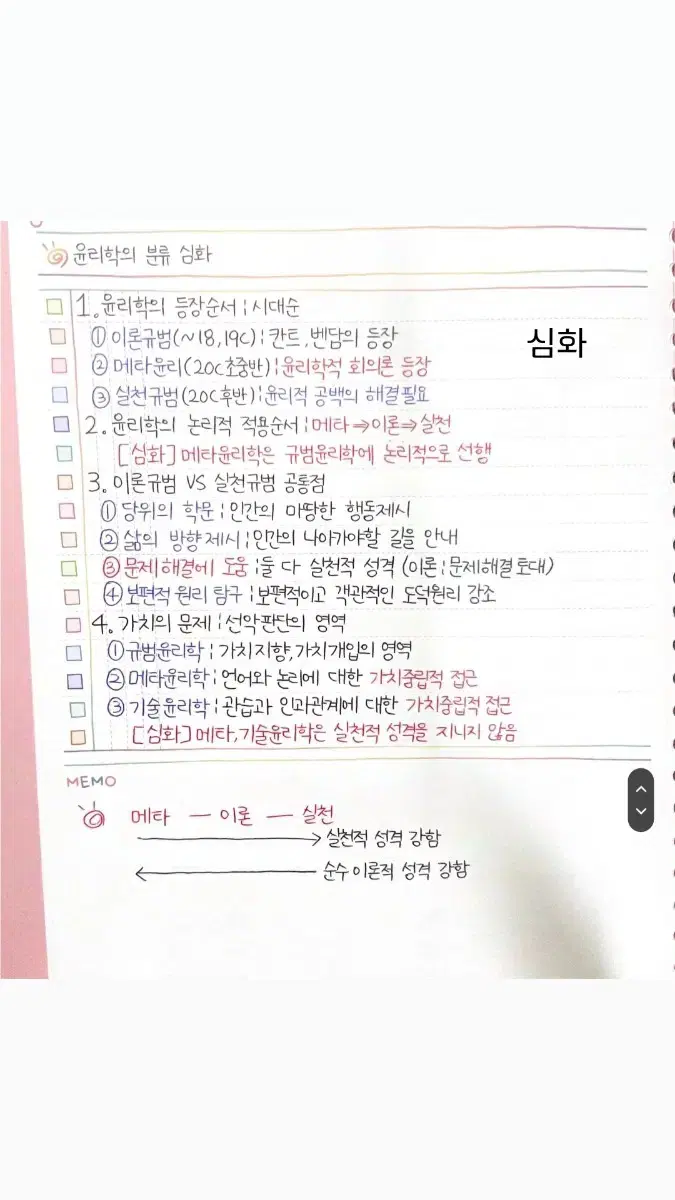 윤리학의 분류 심화
1. 윤리학의 등장순서 | 시대순
① 이론규범(~18,19C) | 칸트, 벤담의 등장
심화
② 메타윤리(20C초중반) | 윤리학적 회의론 등장
③ 실천규범(20C후반) | 윤리적 공백의 해결필요
2. 윤리학의 논리적 적용순서 | 메타⇒이론⇒실천
[심화] 메타윤리학은 규범윤리학에 논리적으로 선행
3. 이론규범 VS 실천규범 공통점
① 당위의 학문 | 인간의 마땅한 행동제시
② 삶의 방향제시 | 인간의 나아가야할 길을 안내
③ 문제해결에 도움 | 둘 다 실천적 성격 (이론 | 문제해결 토대)
④ 보편적 원리 탐구 | 보편적이고 객관적인 도덕원리 강조
4. 가치의 문제 | 선악판단의 영역
① 규범윤리학 | 가치지향, 가치개입의 영역
② 메타윤리학 | 언어와 논리에 대한 가치중립적 접근
③ 기술윤리학 | 관습과 인과관계에 대한 가치중립적 접근
[심화] 메타, 기술윤리학은 실천적 성격을 지니지 않음
MEMO
메타 — 이론 — 실천
→ 실천적 성격 강함
← 순수 이론적 성격 강함